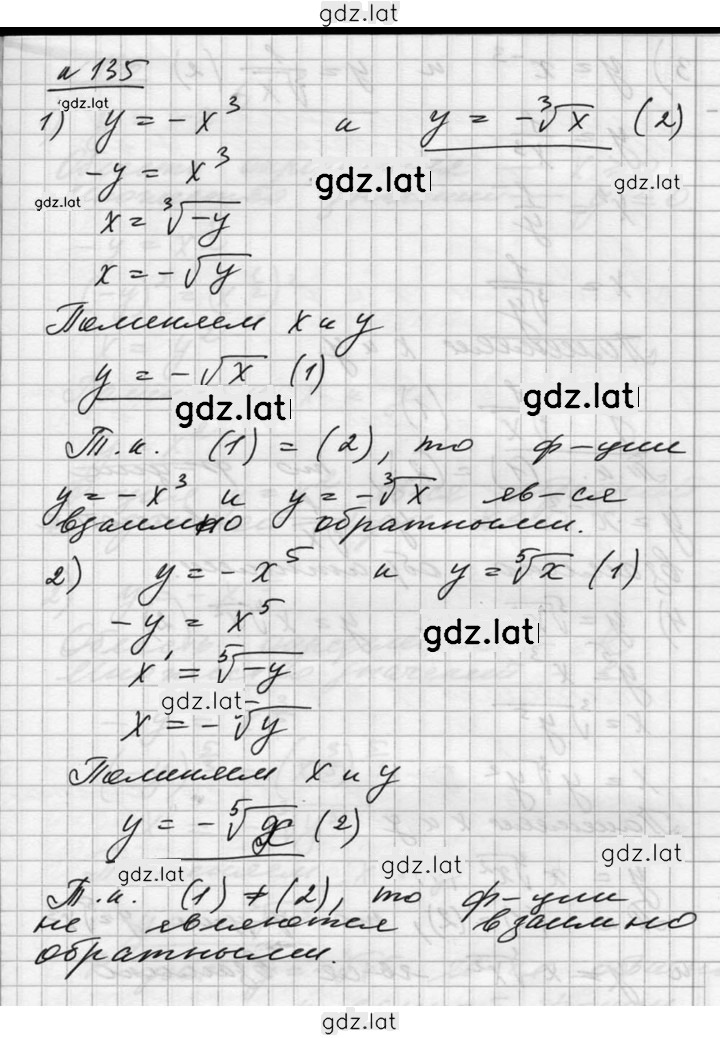 gdz.lat
№ 135
gdz.lat
1) y = -x³ и y = -∛x (2)
-y = x³ gdz.lat gdz.lat
gdz.lat
x = ∛-y
x = -√y
Поменяем x и y
y = -√x (1)
gdz.lat gdz.lat
Т.к. (1) = (2), то ф-ции
y = -x³ и y = -∛x яв-ся
взаимно обратными.
2) y = -x⁵ и y = ⁵√x (1)
-y = x⁵ gdz.lat
x = ⁵√-y
gdz.lat
x = -√y
Поменяем x и y
y = -⁵√x (2)
gdz.lat gdz.lat gdz.lat
Т.к. (1) ≠ (2), то ф-ции
не являются взаимно
обратными.
gdz.lat